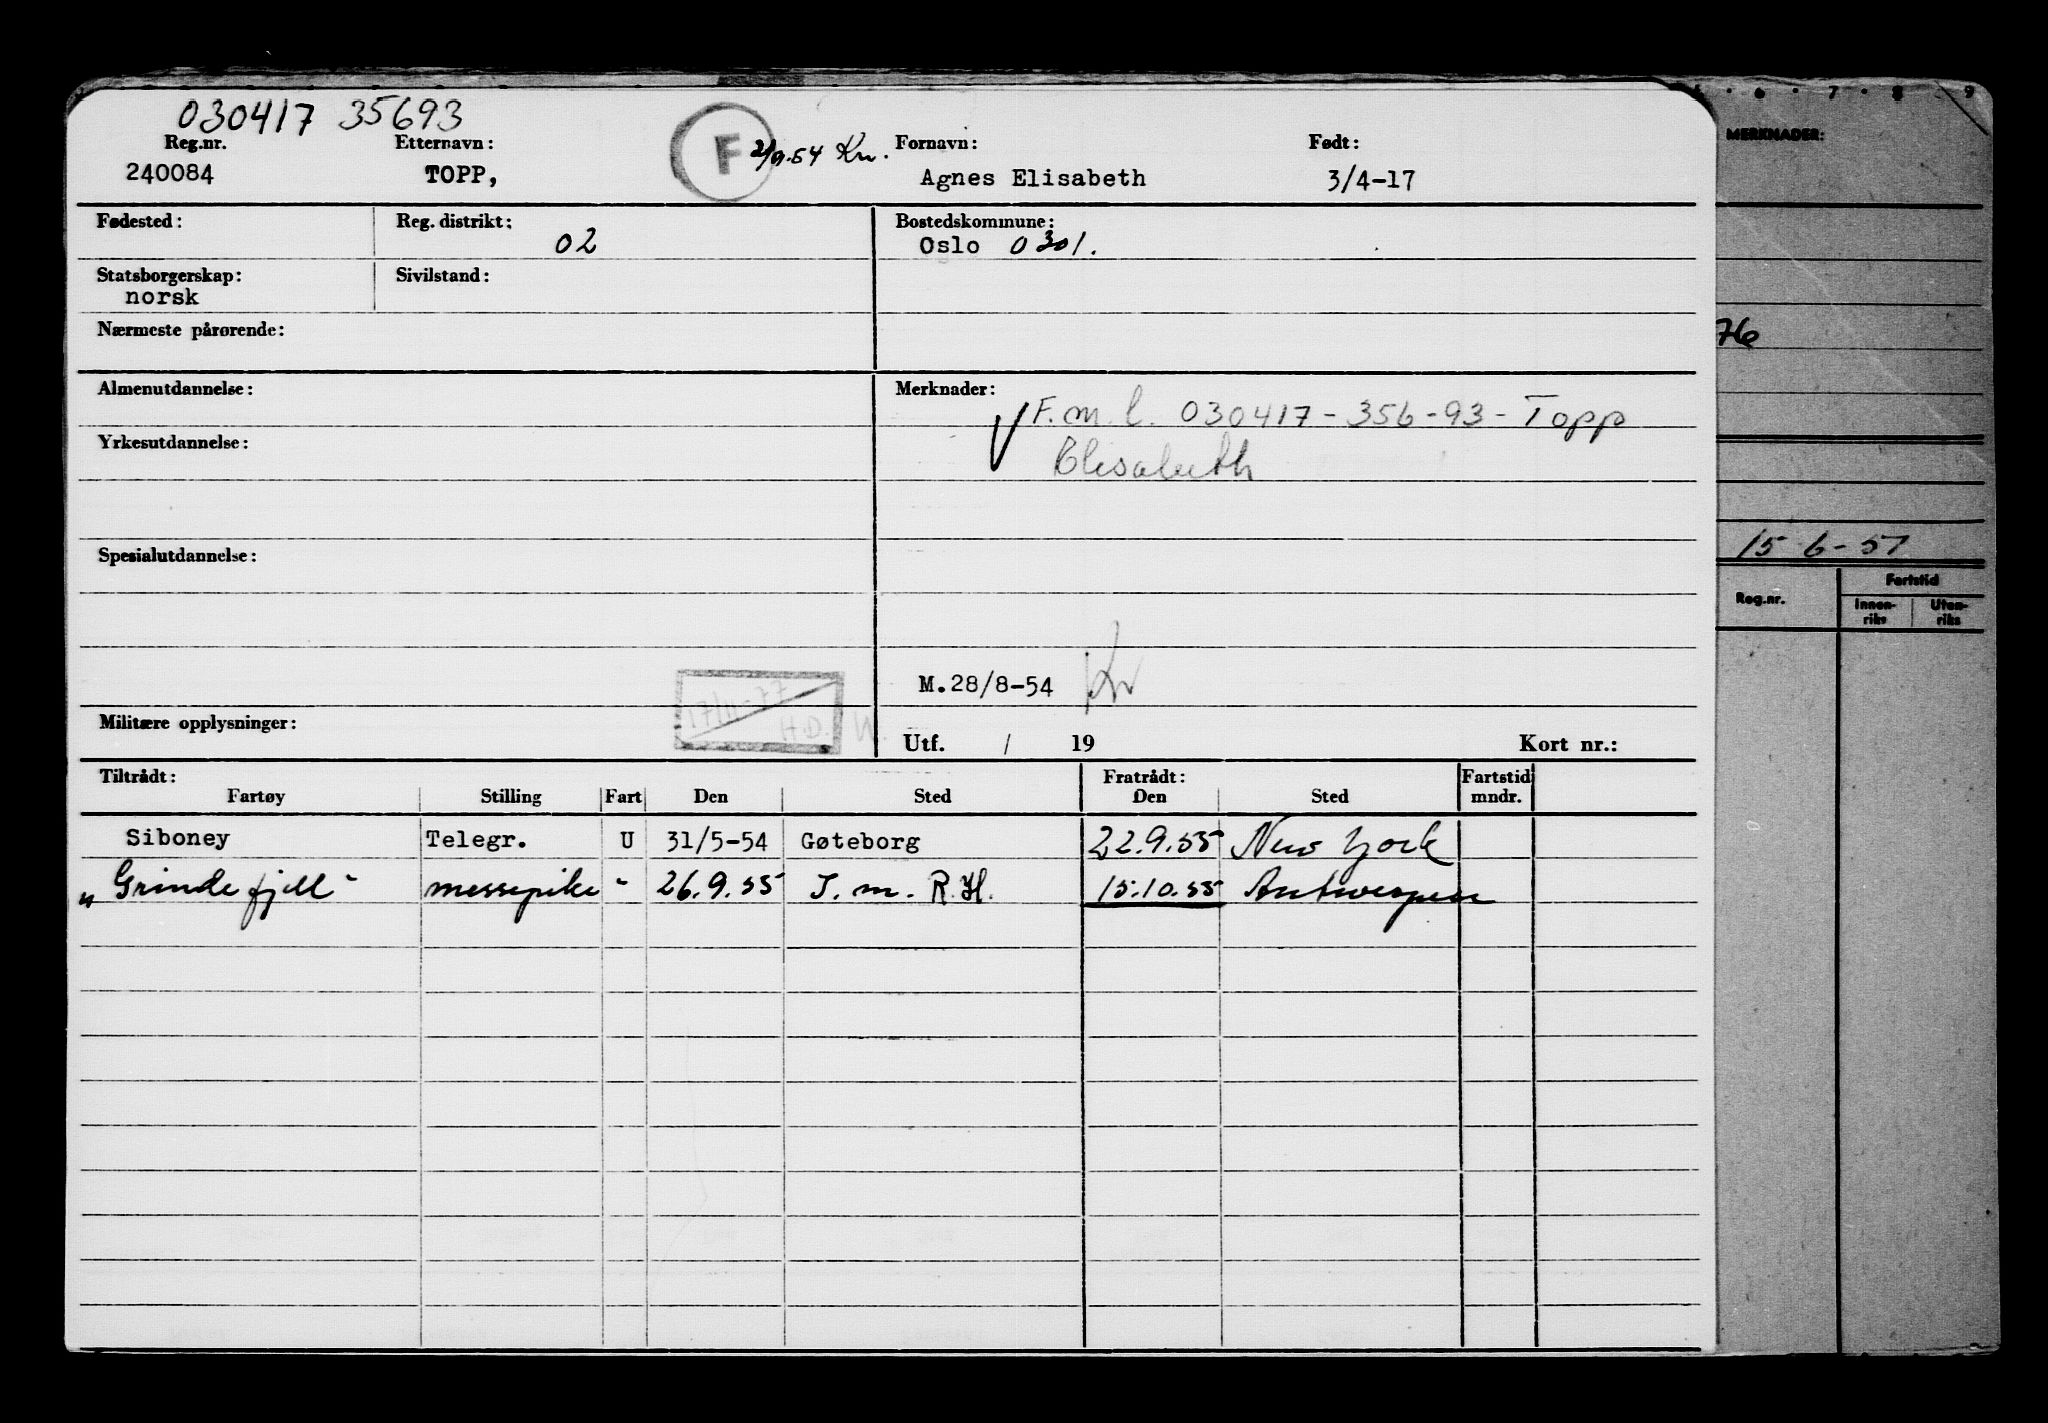 030417 35693
Reg.nr. Etternavn: Fornavn: Født:
240084 TOPP, F 2/9.54 Kn. Agnes Elisabeth 3/4-17
Fødested: Reg. distrikt: 02 Bostedskommune:
Oslo 0301.
Statsborgerskap: Sivilstand:
norsk
Nærmeste pårørende:
Almenutdannelse: Merknader:
F.m.l. 030417-356-93-Topp
Elisabeth
Yrkesutdannelse:
Spesialutdannelse:
M.28/8-54
17/11-77
H.D.
Militære opplysninger: Utf. / 19 Kort nr.:
Tiltrådt: Fratrådt: Fartstid
Fartøy Stilling Fart Den Sted Den Sted mndr.
Siboney Telegr. U 31/5-54 Gøteborg 22.9.55 New York
"Grindefjell" messepike " 26.9.55 T.m. R.H. 15.10.55 Antwerpen
6 · 7 · 8 9
MERKNADER:
76
15 6-51
Reg.nr. Fartstid
Innen-
riks
Uten-
riks